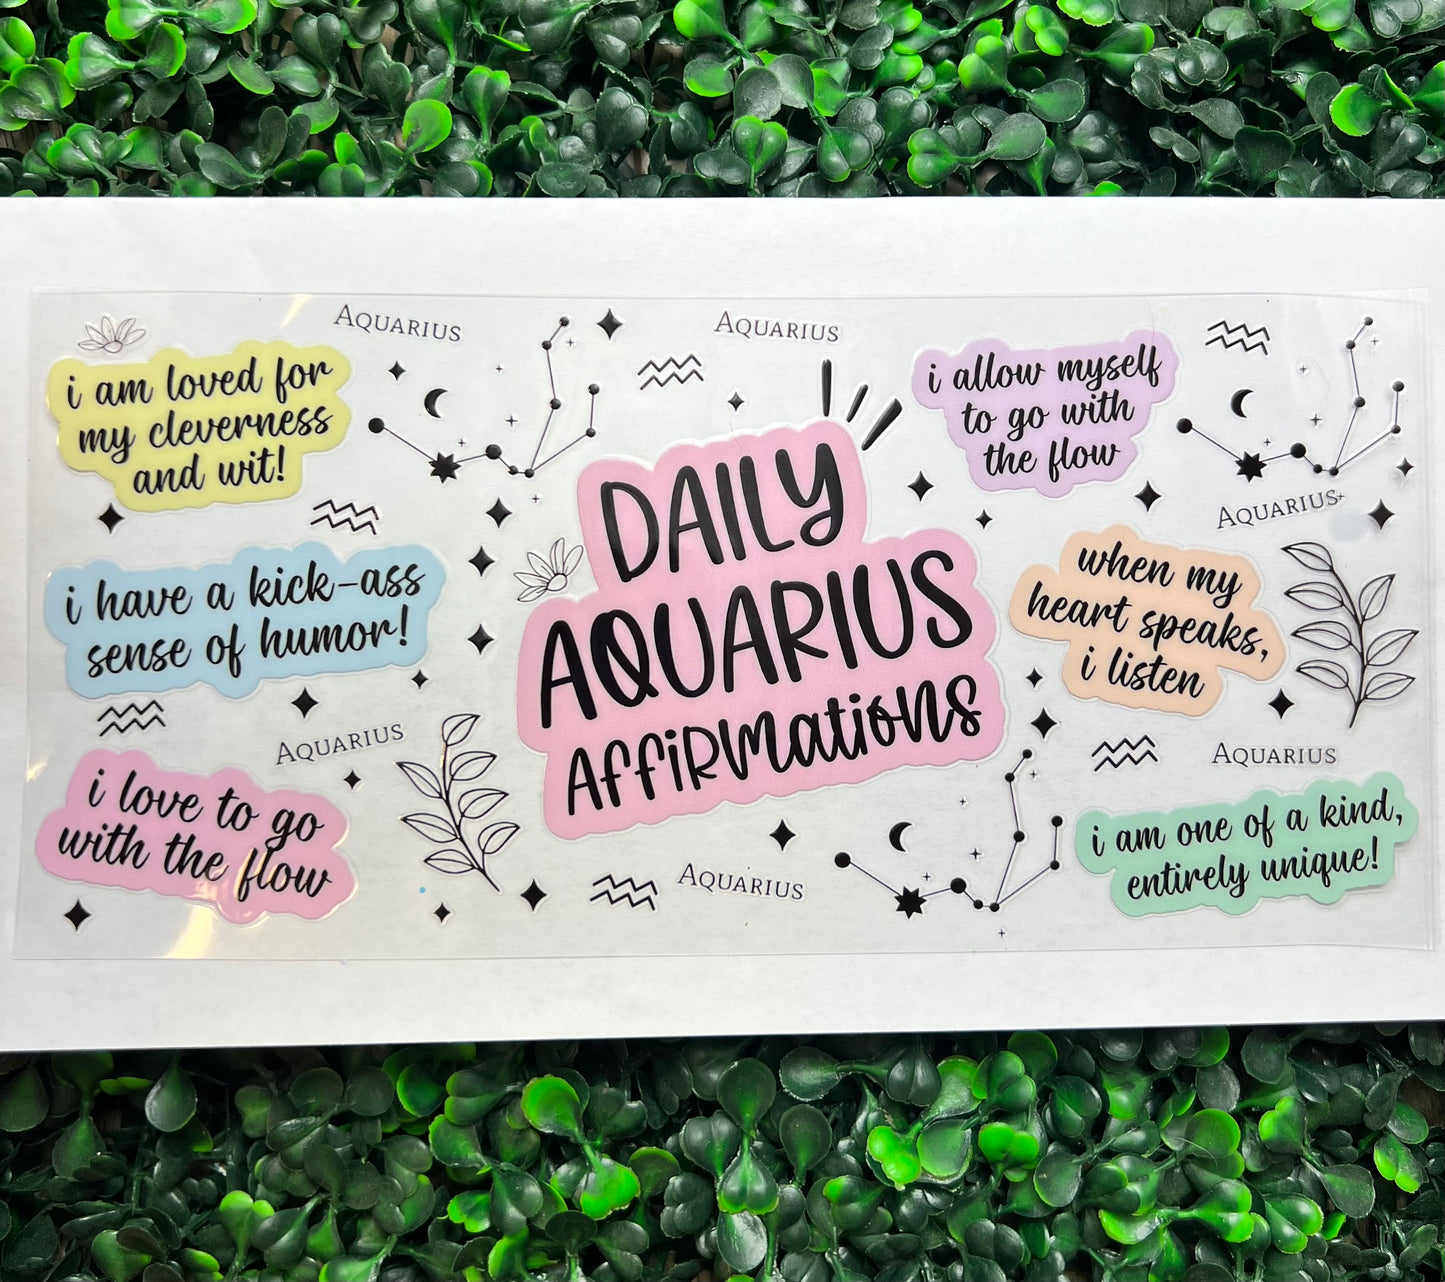 Aquarius
Aquarius
i am loved for
my cleverness
and wit!
i allow myself
to go with
the flow
DAILY
AQUARIUS
AFFiRMatioNs
Aquarius
i have a kick-ass
sense of humor!
when my
heart speaks,
i listen
Aquarius
Aquarius
i love to go
with the flow
Aquarius
i am one of a kind,
entirely unique!